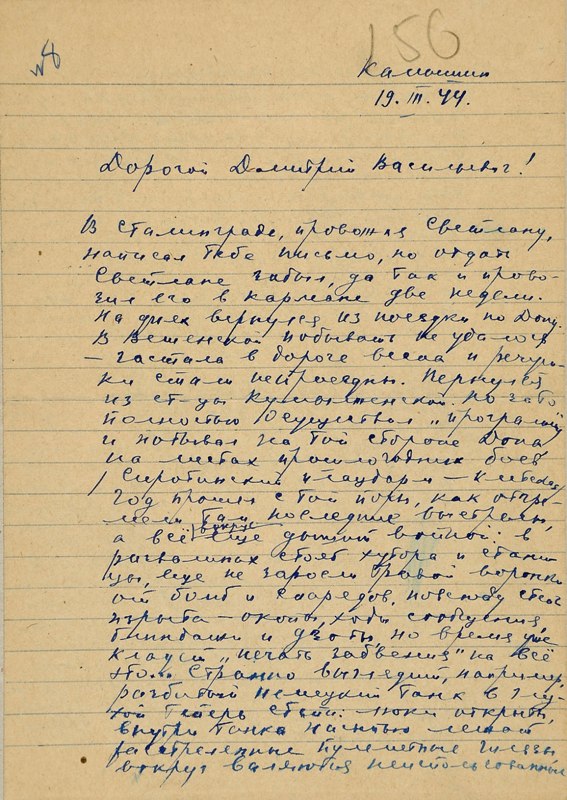 №8
156
Камышин
19.III.44.
Дорогой Дмитрий Васильевич!
В Сталинграде, провожая Светлану,
написал тебе письмо, но отдать
Светлане забыл, да так и прово-
зил его в кармане две недели.
На днях вернулся из поездки по Дону.
В Вешенской побывать не удалось
– застала в дороге весна и речуш-
ки стали непроездны. Вернулся
из ст-цы Кумылженской. Но зато
полностью осуществил „программу"
и побывал на той стороне Дона
на местах прошлогодних боев
/ Сиротинский плацдарм – Клетская/
Год прошел с той поры, как отгре-
мели там последние выстрелы,
а всё вокруг еще дышит войной: в
развалинах стоят хутора и стани-
цы, еще не заросли травой воронки
от бомб и снарядов, повсюду степь
изрыта – окопы, ходы сообщения,
блиндажи и дзоты, но время уже
кладёт „печать забвения" на всё
этом. Странно выглядит, например,
разбитый немецкий танк в глу-
хой теперь степи: люки открыты,
внутри танка на полу лежат
расстрелянные пулеметные гильзы
вокруг валяются неиспользованные